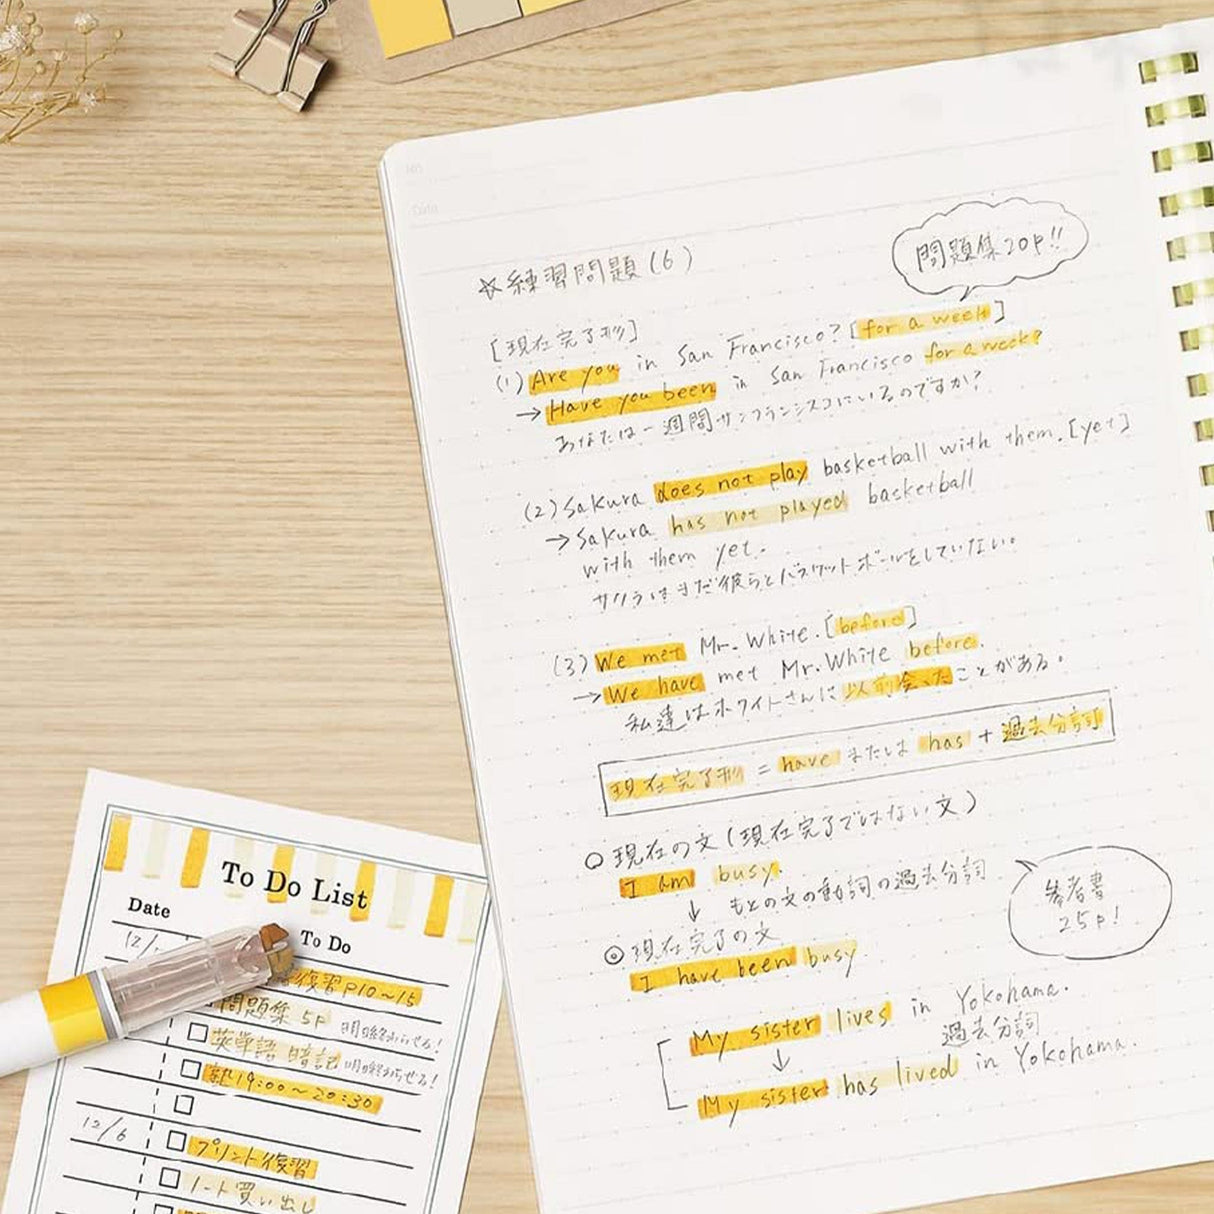 No.
Date
☆練習問題(6)
問題集20p!!
[現在完了形]
(1) Are you in San Francisco? [for a week]
→ Have you been in San Francisco for a week?
あなたは一週間サンフランシスコにいるのですか?
(2) Sakura does not play basketball with them. [yet]
→ Sakura has not played basketball
with them yet.
サクラはまだ彼らとバスケットボールをしていない。
(3) We met Mr. White. [before]
→ We have met Mr. White before.
私達はホワイトさんに以前会ったことがある。
現在完了形 = have または has + 過去分詞
○ 現在の文(現在完了ではない文)
I am busy.
↓ もとの文の動詞の過去分詞
◎ 現在完了の文
I have been busy
参考書
25p!
My sister lives in Yokohama.
↓ 過去分詞
My sister has lived in Yokohama.
To Do List
Date
To Do
復習P10~15
問題集 5P 明日終わらせる!
英単語 暗記 明日終わらせる!
塾19:00~20:30
12/6
プリント復習
ノート買い出し